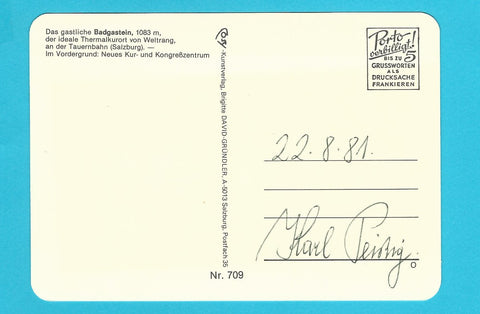 Das gastliche Badgastein, 1083 m,
der ideale Thermalkurort von Weltrang,
an der Tauernbahn (Salzburg). —
Im Vordergrund: Neues Kur- und Kongreßzentrum
-Kunstverlag, Brigitte DAVID-GRÜNDLER, A-5013 Salzburg, Postfach 35
Nr. 709
Porto
verbilligt!
BIS ZU 5
GRUSSWORTEN
ALS
DRUCKSACHE
FRANKIEREN
22.8.81.
Karl